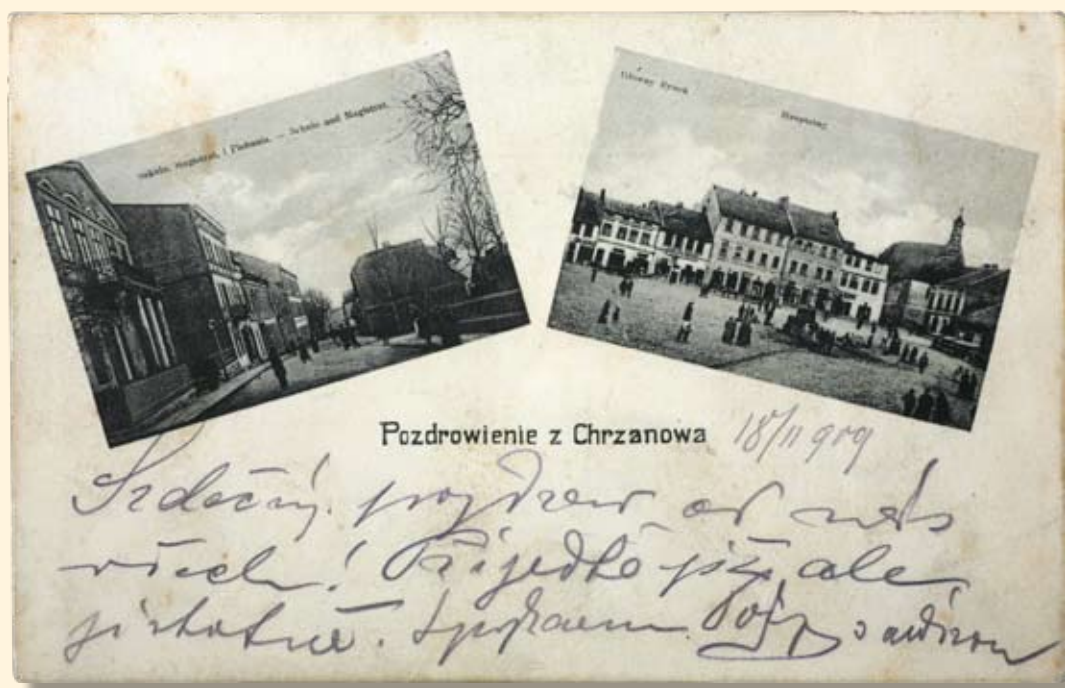 Szkoła, Magistrat, i Plebania. – Schule und Magistrat.
Główny Rynek
Hauptring
Pozdrowienie z Chrzanowa
18/11 909
Srdečný pozdrav od nás
všech! Přijeďte již, ale
jistotně.